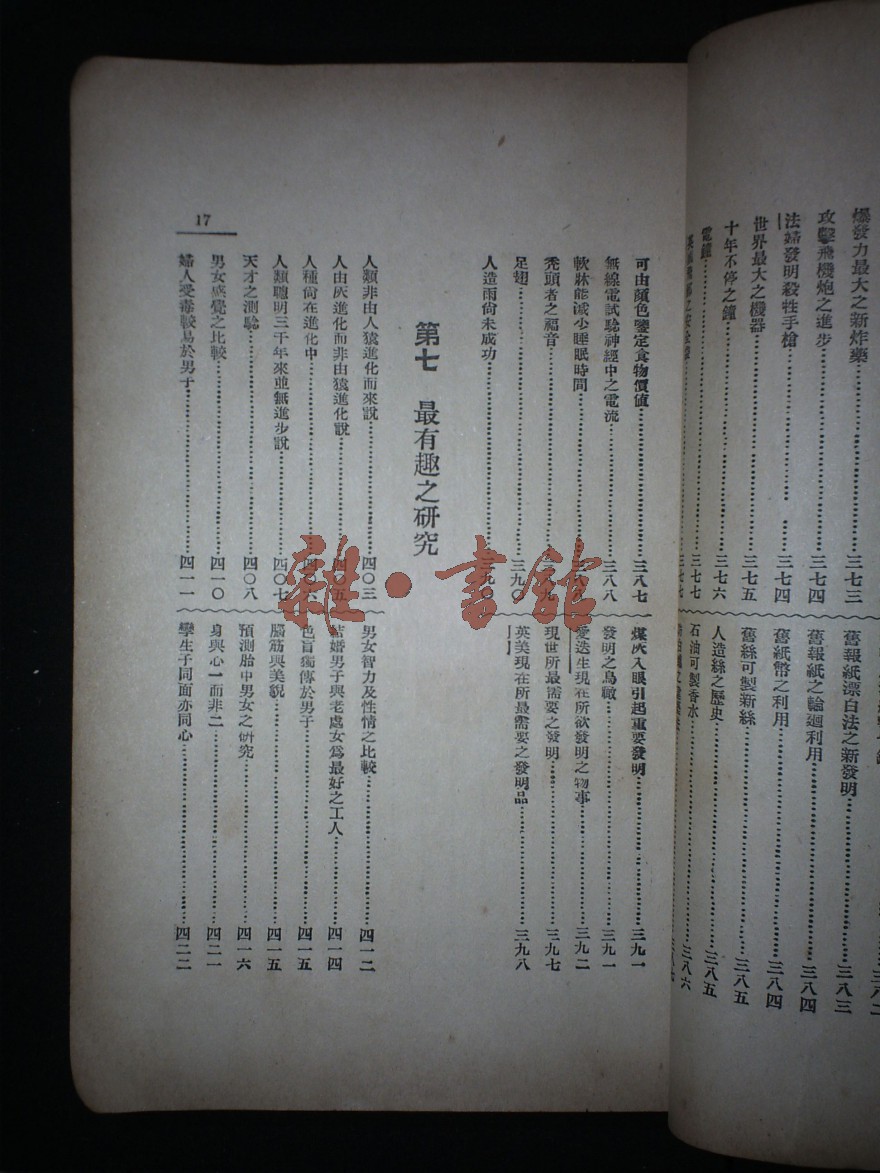 爆發力最大之新炸藥………三七三
攻擊飛機炮之進步………三七四
法語發明殺牲手槍………三七四
世界最大之機器………三七五
十年不停之鐘………三七六
電鐘………三七七
三七七
舊報紙漂白法之新發明………三八三
舊報紙之輪廻利用………三八四
舊紙幣之利用………三八四
舊絲可製新絲………三八五
人造絲之歷史………三八五
石油可製香水………三八六
可由顏色鑒定食物價值………三八七
無線電試驗神經中之電流………三八八
軟牀能減少睡眠時間………三八八
禿頭者之福音………三八九
足翅………三九〇
人造雨尙未成功………三九〇
煤灰入眼引起重要發明………三九一
發明之鳥瞰………三九一
愛迭生現在所欲發明之物事………三九二
現世所最需要之發明………三九七
英美現在所最需要之發明品………三九八
第七 最有趣之研究
人類非由人猿進化而來說………四〇三
人由灰進化而非由猿進化說………四〇五
人種尙在進化中………四〇六
人類聰明三千年來並無進步說………四〇七
天才之測驗………四〇八
男女感覺之比較………四一〇
婦人受毒較易於男子………四一一
男女智力及性情之比較………四一二
結婚男子與老處女爲最好之工人………四一四
色盲獨傳於男子………四一五
腦筋與美貌………四一五
預測胎中男女之研究………四一六
身與心一而非二………四二一
孿生子同面亦同心………四二二
17
雜·書館